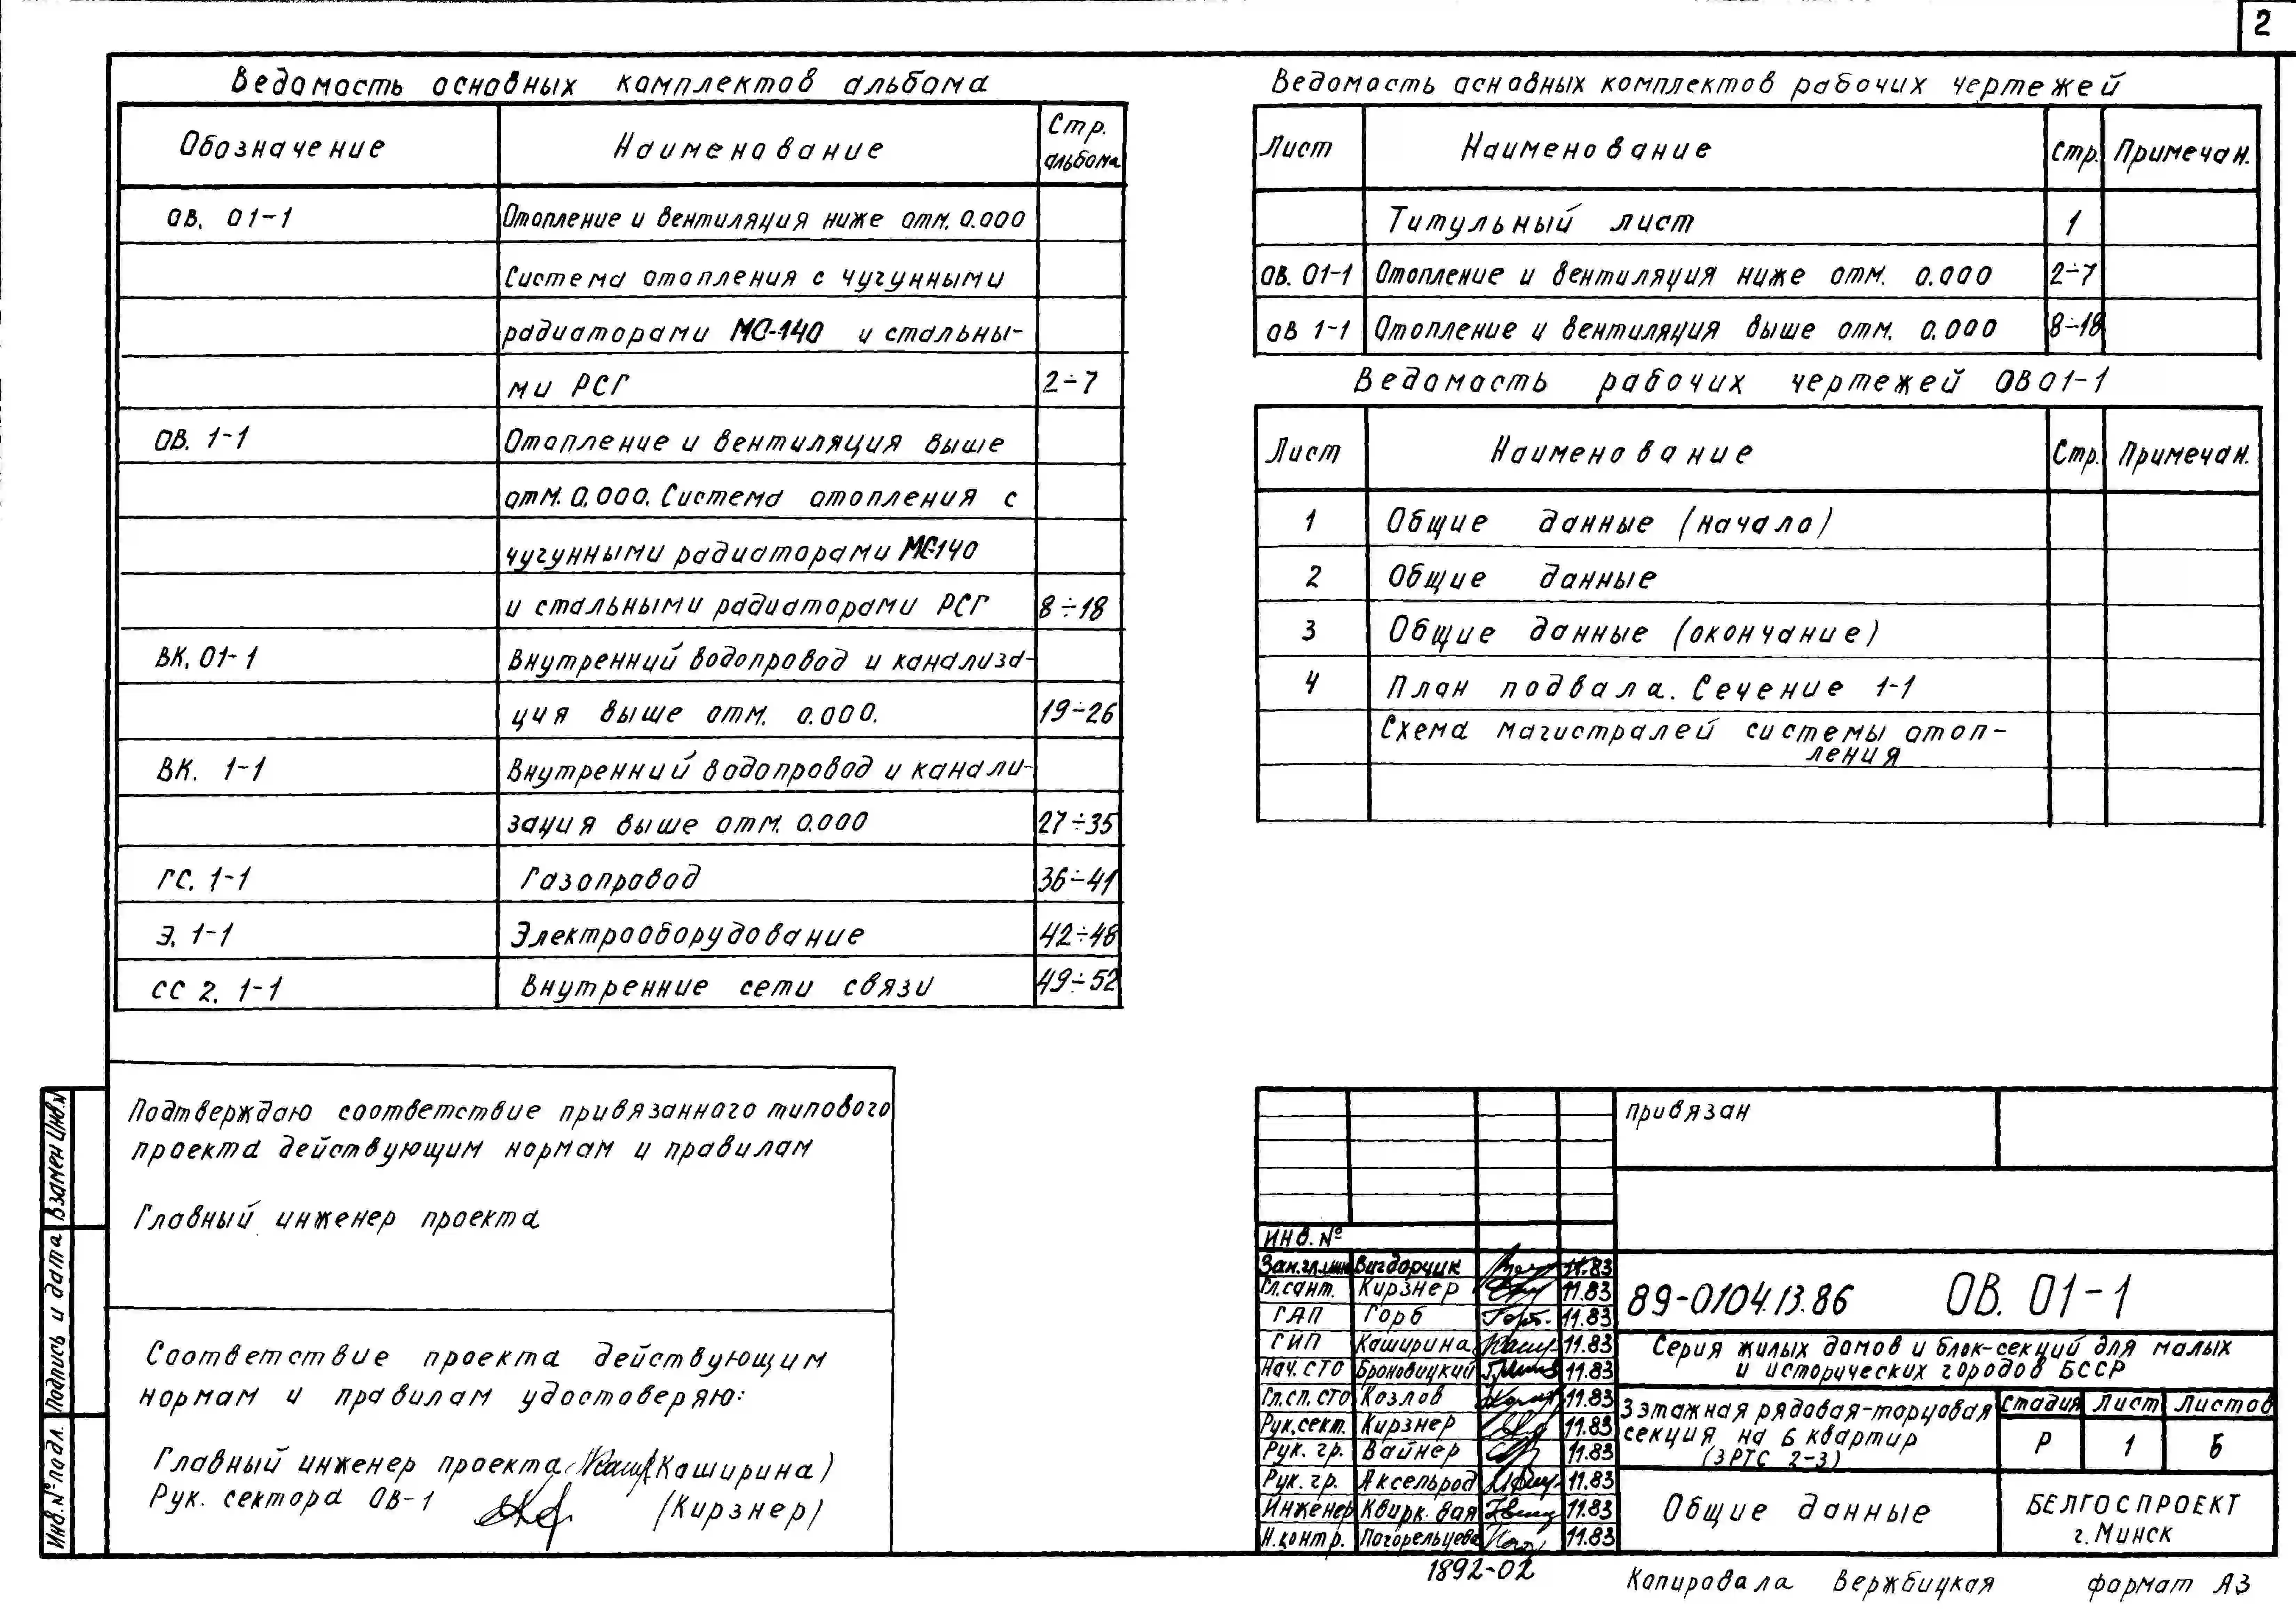 2
Ведомость основных комплектов альбома
Обозначение Наименование Стр. альбома
ОВ. 01-1 Отопление и вентиляция ниже отм. 0.000
Система отопления с чугунными
радиаторами МС-140 и стальны-
ми РСГ 2÷7
ОВ. 1-1 Отопление и вентиляция выше
отм. 0.000. Система отопления с
чугунными радиаторами МС-140
и стальными радиаторами РСГ 8÷18
ВК. 01-1 Внутренний водопровод и канализа-
ция выше отм. 0.000. 19÷26
ВК. 1-1 Внутренний водопровод и канали-
зация выше отм. 0.000 27÷35
ГС. 1-1 Газопровод 36÷41
Э. 1-1 Электрооборудование 42÷48
СС 2. 1-1 Внутренние сети связи 49÷52
Ведомость основных комплектов рабочих чертежей
Лист Наименование стр. Примечан.
Титульный лист 1
ОВ. 01-1 Отопление и вентиляция ниже отм. 0.000 2÷7
ОВ 1-1 Отопление и вентиляция выше отм. 0.000 8÷18
Ведомость рабочих чертежей ОВ01-1
Лист Наименование Стр. Примечан.
1 Общие данные (начало)
2 Общие данные
3 Общие данные (окончание)
4 План подвала. Сечение 1-1
Схема магистралей системы отоп-
ления
Подтверждаю соответствие привязанного типового
проекта действующим нормам и правилам
Главный инженер проекта
Соответствие проекта действующим
нормам и правилам удостоверяю:
Главный инженер проекта (Каширина)
Рук. сектора ОВ-1 (Кирзнер)
Взамен Инв.№
Подпись и дата
Инв.№ подл.
привязан
инв. №
Зам.гл.инж Вигдорчик 11.83
Гл.сант. Кирзнер 11.83
ГАП Горб 11.83
ГИП Каширина 11.83
Нач. СТО Броновицкий 11.83
Гл.сп. СТО Козлов 11.83
Рук.сект. Кирзнер 11.83
Рук. гр. Вайнер 11.83
Рук. гр. Аксельрод 11.83
Инженер Квирк.вая 11.83
Н.контр. Погорельцева 11.83
89-0104.13.86 ОВ. 01-1
Серия жилых домов и блок-секций для малых
и исторических городов БССР
3 этажная рядовая-торцовая
секция на 6 квартир
(3РТС 2-3)
Стадия Лист Листов
Р 1 6
Общие данные
БЕЛГОСПРОЕКТ
г. Минск
1892-02
Копировала Вержбицкая формат А3